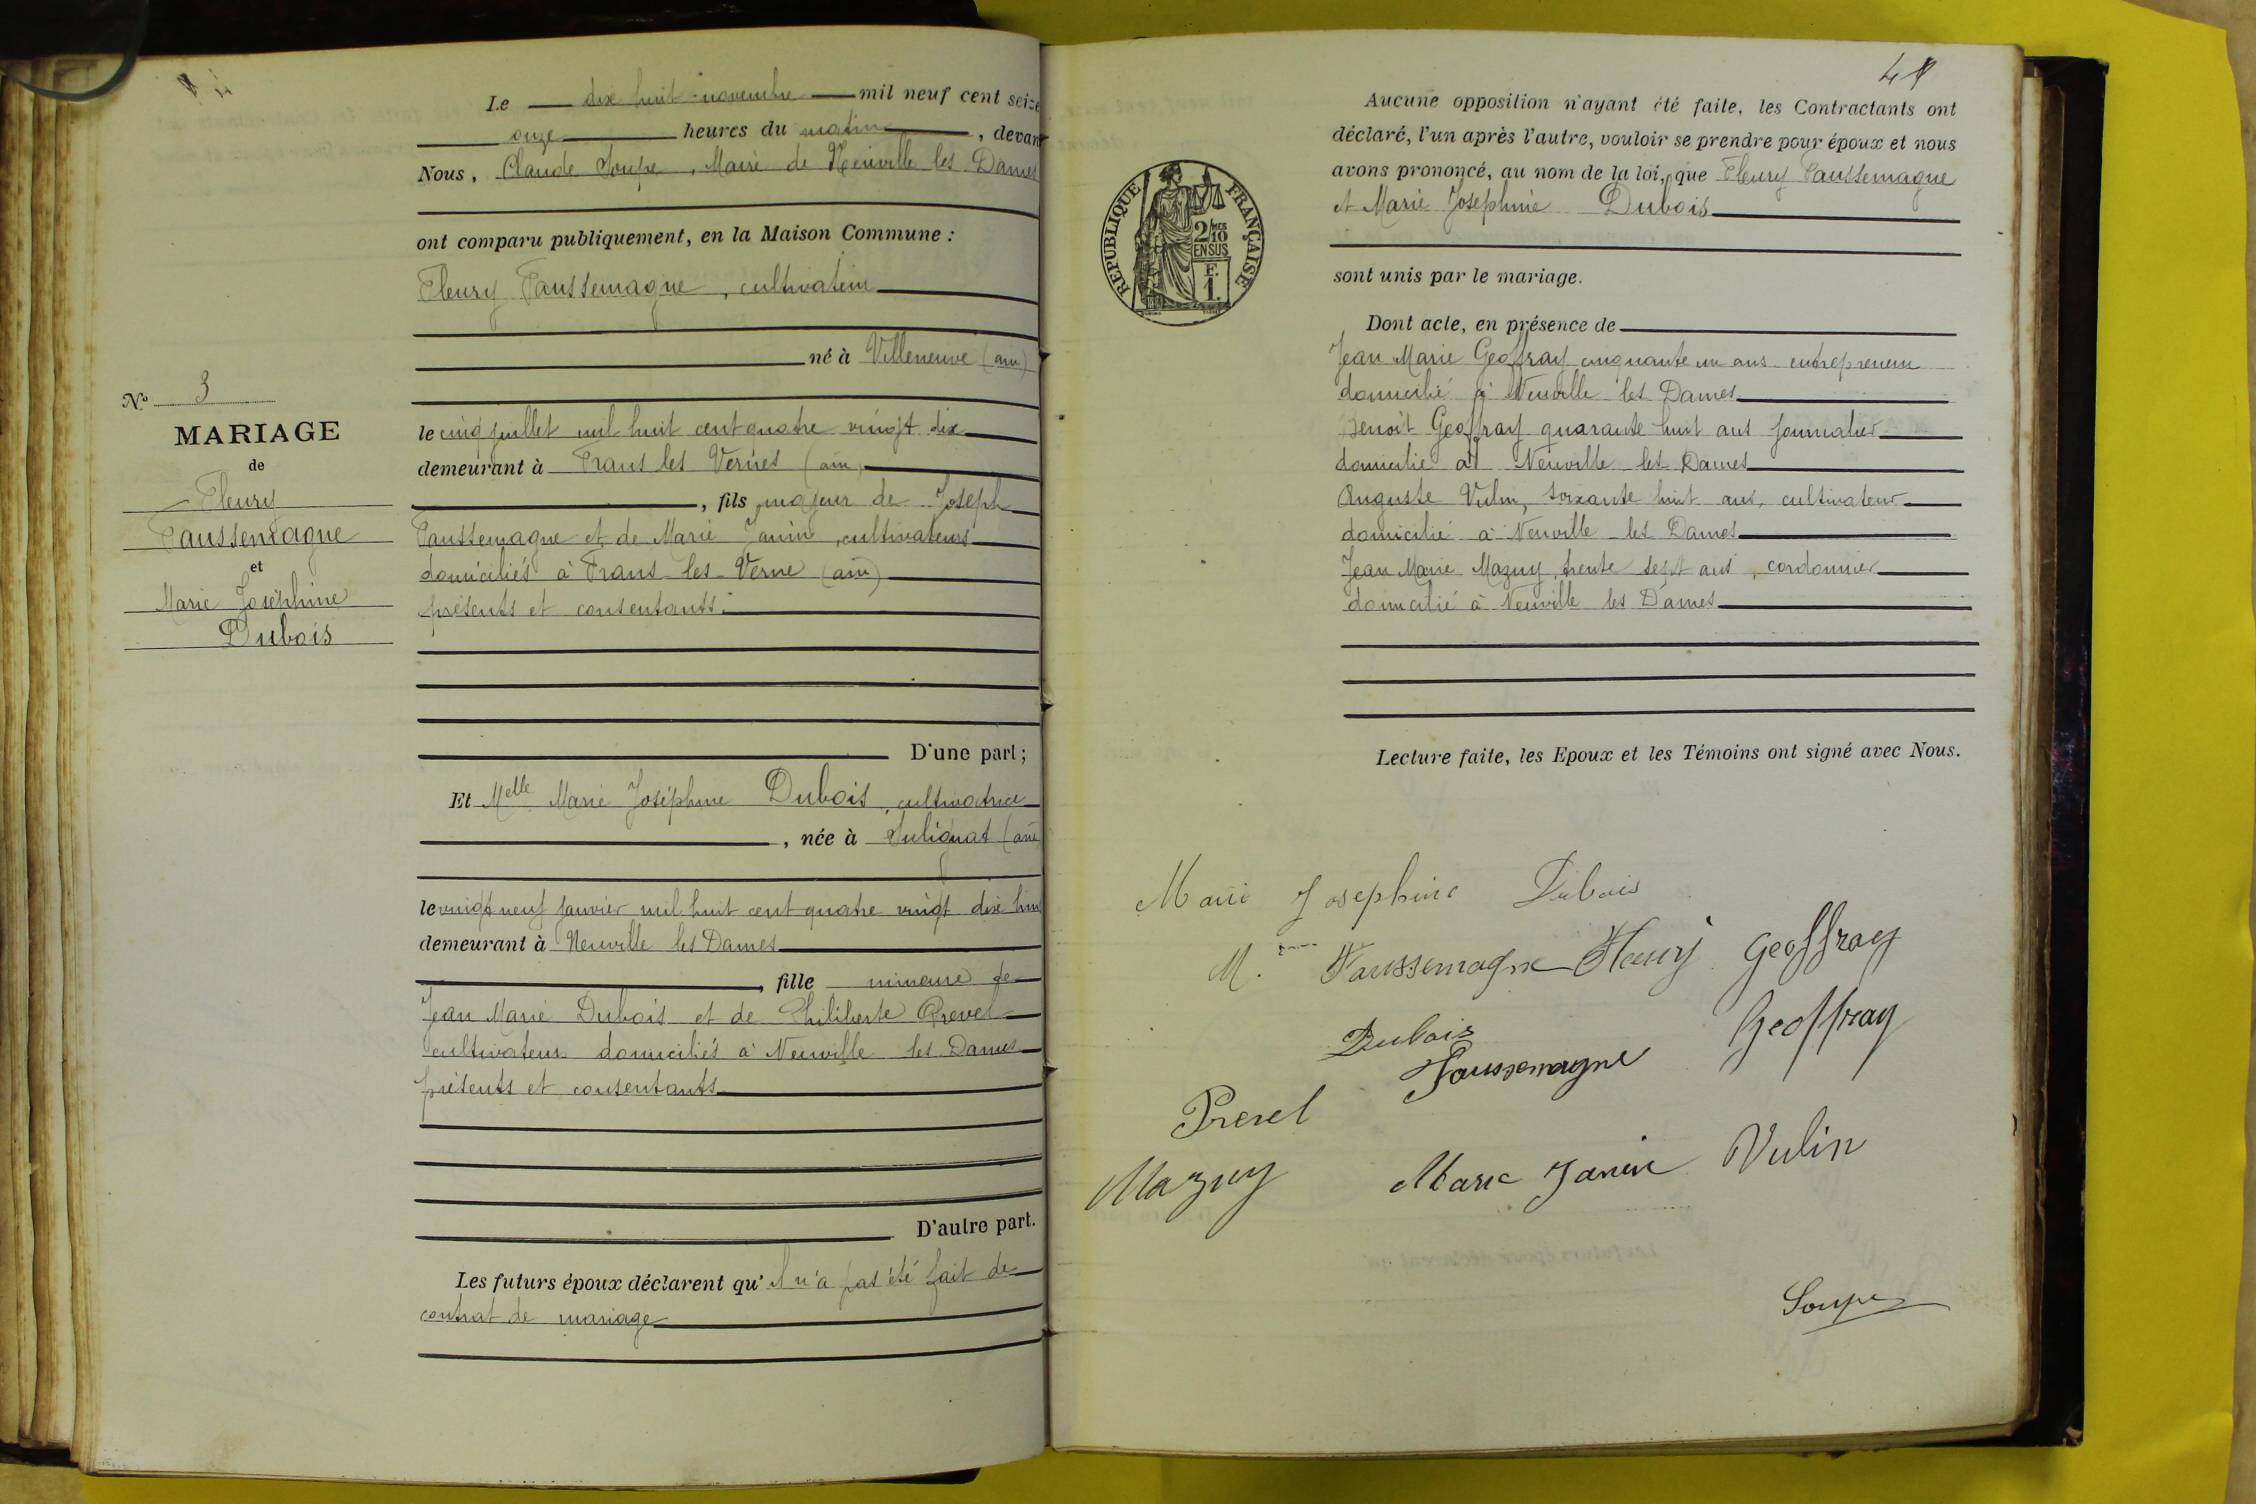 Le dix huit novembre mil neuf cent seize
onze heures du matin, devant
Nous, Claude Soupe, Maire de Neuville les Dames
ont comparu publiquement, en la Maison Commune :
Fleury Faussemagne, cultivateur
né à Villeneuve (ain)
le cinq juillet mil huit cent quatre vingt dix
demeurant à Frans les Vernes (ain)
, fils majeur de Joseph
Faussemagne et de Marie Janin, cultivateurs
domiciliés à Frans les Verne (ain)
présents et consentants.
D'une part ;
Et Melle Marie Joséphine Dubois, cultivatrice
, née à Sulignat (ain)
le vingt neuf janvier mil huit cent quatre vingt dix huit
demeurant à Neuville les Dames
, fille mineure de
Jean Marie Dubois et de Philiberte Prevel
cultivateurs domiciliés à Neuville les Dames
présents et consentants
D'autre part.
Les futurs époux déclarent qu'il n'a pas été fait de
contrat de mariage
No 3
MARIAGE
de
Fleury
Faussemagne
et
Marie Joséphine
Dubois
Aucune opposition n'ayant été faite, les Contractants ont
déclaré, l'un après l'autre, vouloir se prendre pour époux et nous
avons prononcé, au nom de la loi, que Fleury Faussemagne
et Marie Joséphine Dubois
sont unis par le mariage.
Dont acte, en présence de
Jean Marie Geoffray cinquante un ans entrepreneur
domicilié à Neuville les Dames
Benoît Geoffray quarante huit ans journalier
domicilié à Neuville les Dames
Auguste Vulin, soixante huit ans, cultivateur
domicilié à Neuville les Dames
Jean Marie Mazuy, trente sept ans, cordonnier
domicilié à Neuville les Dames
Lecture faite, les Epoux et les Témoins ont signé avec Nous.
REPUBLIQUE FRANÇAISE
2/10
EN SUS
F.
1.
Marie Josephine Dubois
Faussemagne Fleury Geoffray
Dubois Geoffray
Faussemagne
Prevel
Mazuy Marie Janin Vulin
Soupe